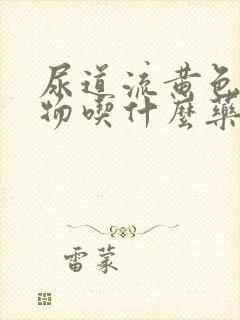 尿道流黄色
物喫什麼藥
雷蒙